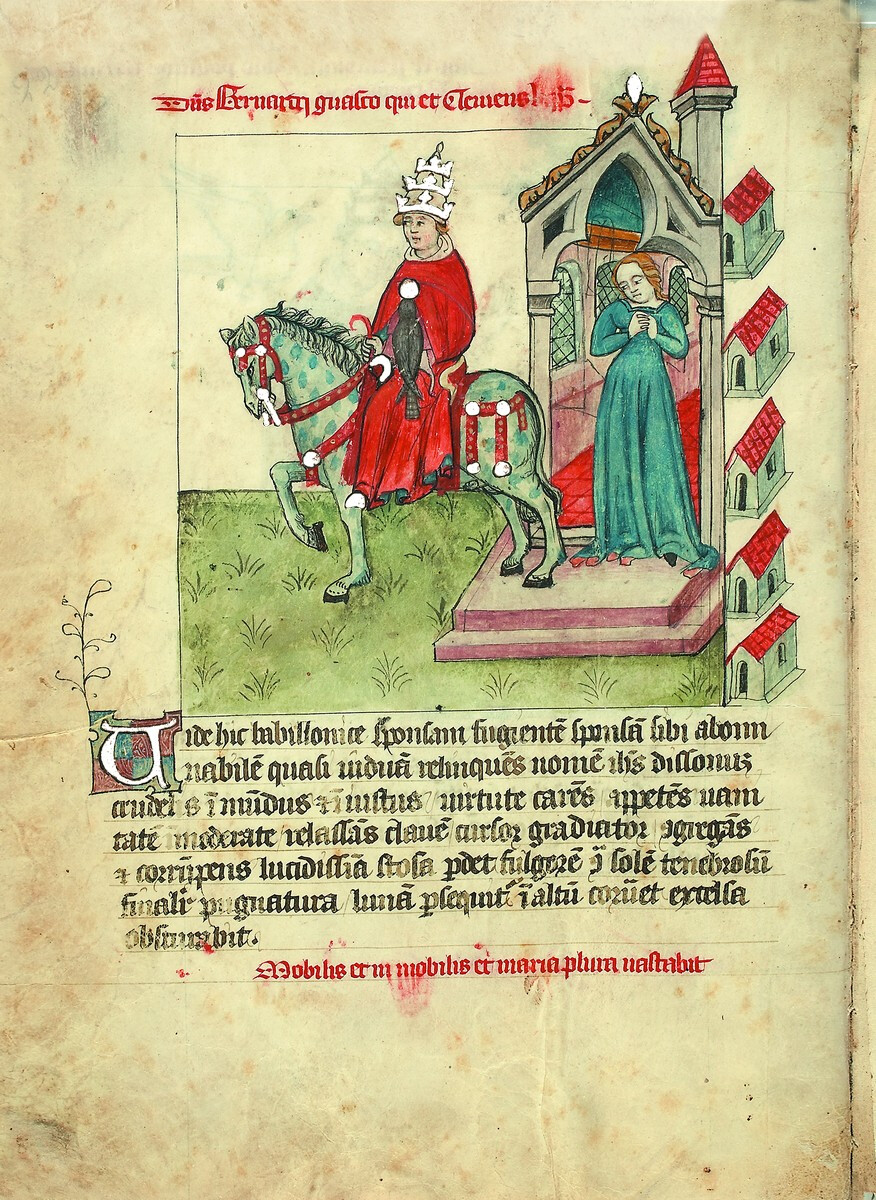 Dūs Bernardꝰ guasco qui et Clemens
Vide hic babillonice sponsam fugientē sponsā sibi abomi
nabilē quasi viduā relinquēs nomē ihs dissonus
crudelis īmūdus iniustus virtute carēs appetēs vani
tatē moderate relassās clavē cursor gradiator ꝯgregās
⁊ corrūpens lucidissīa stola pdet fulgorē solē tenebrosū
finalr pugnatura lunā psequit ī altū excelsa
obscurabit.
Mobilis et in mobilis et maria plura vastabit